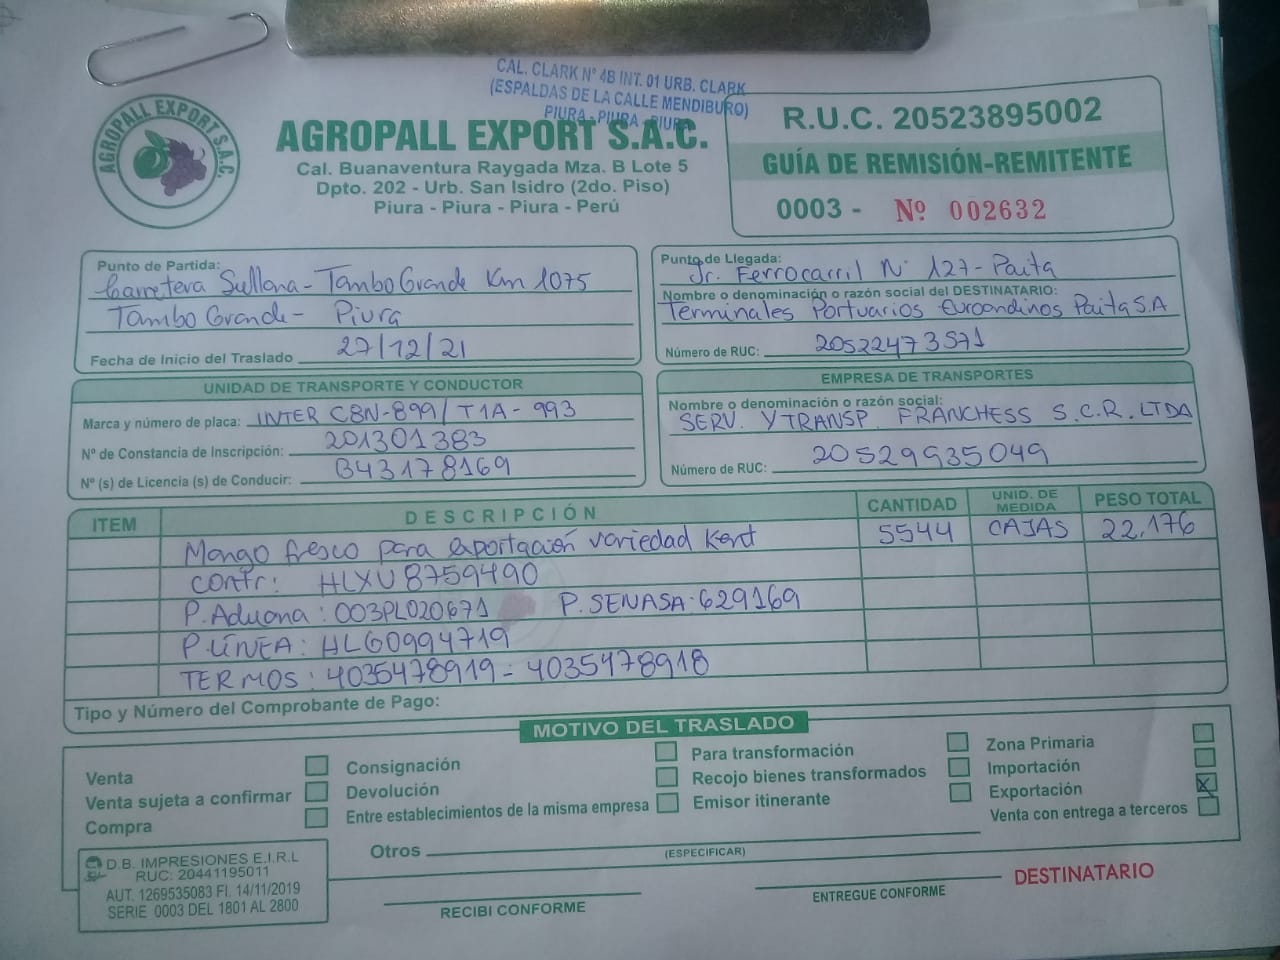 CAL. CLARK Nº 48 INT. 01 URB. CLARK
(ESPALDAS DE LA CALLE MENDIBURO)
PIURA - PIURA - PIURA
AGROPALL EXPORT S.A.C.
AGROPALL EXPORT S.A.C.
Cal. Buanaventura Raygada Mza. B Lote 5
Dpto. 202 - Urb. San Isidro (2do. Piso)
Piura - Piura - Piura - Perú
R.U.C. 20523895002
GUÍA DE REMISIÓN-REMITENTE
0003 - Nº 002632
Punto de Partida:
Carretera Sullana - TamboGrande Km 1075
TamboGrande - Piura
Fecha de Inicio del Traslado 27/12/21
Punto de Llegada:
Jr. Ferrocarril N° 127 - Paita
Nombre o denominación o razón social del DESTINATARIO:
Terminales Portuarios Euroandinos Paita S.A
Número de RUC: 20522473571
UNIDAD DE TRANSPORTE Y CONDUCTOR
Marca y número de placa: INTER C8N-899/T1A-993
Nº de Constancia de Inscripción: 201301383
Nº (s) de Licencia (s) de Conducir: B43178169
EMPRESA DE TRANSPORTES
Nombre o denominación o razón social:
SERV. Y TRANSP. FRANCHESS S.C.R. LTDA
Número de RUC: 20529935049
ITEM DESCRIPCIÓN CANTIDAD UNID. DE MEDIDA PESO TOTAL
Mango fresco para exportación variedad Kent 5544 CAJAS 22.176
Contr: HLXU8759490
P. Aduana: 003PL020671 P. SENASA: 629169
P. LÍNEA: HLG0994719
TERMOS: 4035478919 - 4035478918
Tipo y Número del Comprobante de Pago:
MOTIVO DEL TRASLADO
Venta
Venta sujeta a confirmar
Compra
Consignación
Devolución
Entre establecimientos de la misma empresa
Para transformación
Recojo bienes transformados
Emisor itinerante
Zona Primaria
Importación
Exportación X
Venta con entrega a terceros
Otros
(ESPECIFICAR)
D.B. IMPRESIONES E.I.R.L
RUC: 20441195011
AUT. 1269535083 FI. 14/11/2019
SERIE 0003 DEL 1801 AL 2800
RECIBI CONFORME
ENTREGUE CONFORME
DESTINATARIO